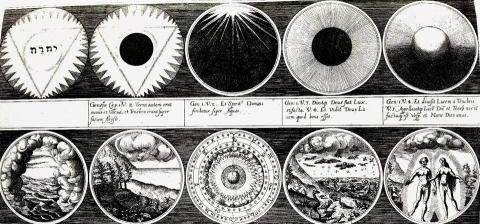 Genesis Cap. 1. V. 2. Terra autem erat
inanis et Vacua, et Tenebræ erant super
faciem Abyssi.
Gen: 1. V. 2. Et Domini
ferebatur super Aquas.
Gen: 1. V. 3. Dixitq Deus fiat Lux,
et facta V. 4. Et Vidit Deus Lu:
cem quod bona esset.
Gen: 1. V. 4. Et divisit Lucem à Tenebris
V. 5. et
est et Mane Dies unus.